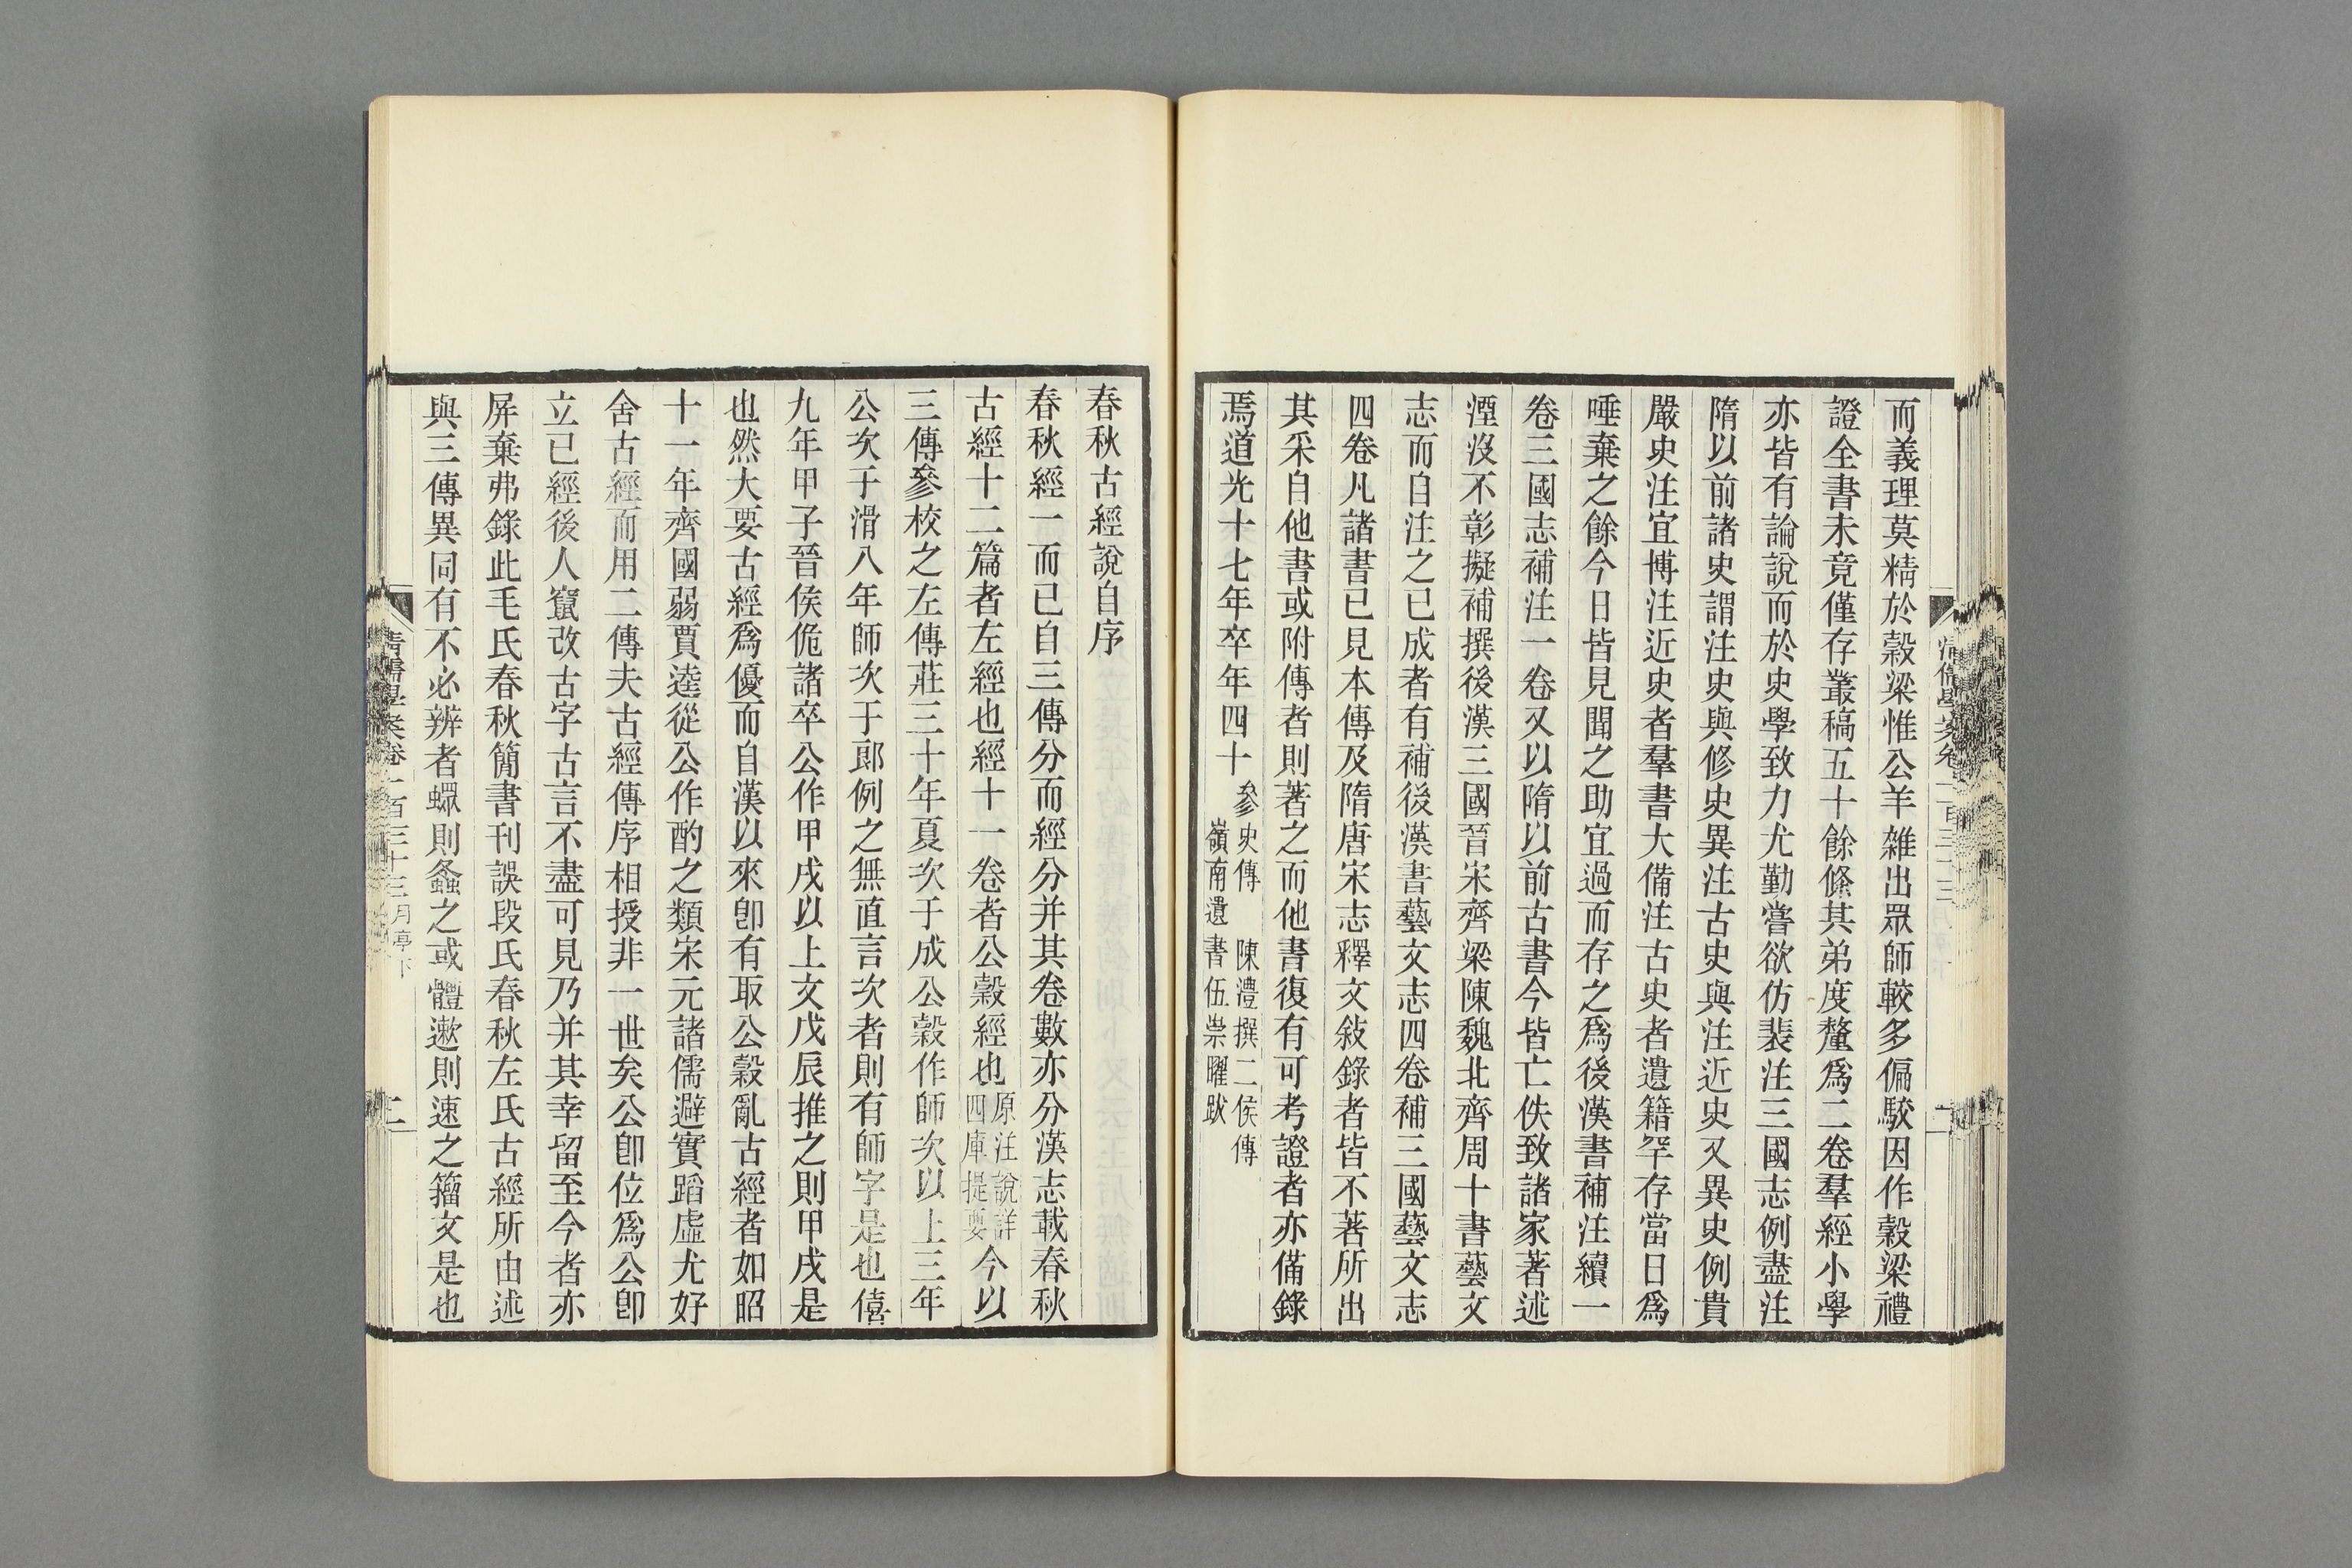 而義理莫精於穀梁惟公羊雜出眾師較多偏駮因作穀梁禮
證全書未竟僅存叢稿五十餘條其弟度釐爲二卷羣經小學
亦皆有論說而於史學致力尤勤嘗欲仿裴注三國志例盡注
隋以前諸史謂注史與修史異注古史與注近史又異史例貴
嚴史注宜博注近史者羣書大備注古史者遺籍罕存當日爲
唾棄之餘今日皆見聞之助宜過而存之爲後漢書補注續一
卷三國志補注一卷又以隋以前古書今皆亡佚致諸家著述
湮沒不彰擬補撰後漢三國晉宋齊梁陳魏北齊周十書藝文
志而自注之已成者有補後漢書藝文志四卷補三國藝文志
四卷凡諸書已見本傳及隋唐宋志釋文敍錄者皆不著所出
其采自他書或附傳者則著之而他書復有可考證者亦備錄
焉道光十七年卒年四十參史傳 陳澧撰二侯傳
嶺南遺書伍崇曜跋
春秋古經說自序
春秋經一而已自三傳分而經分并其卷數亦分漢志載春秋
古經十二篇者左經也經十一卷者公穀經也原注說詳四庫提要今以
三傳參校之左傳莊三十年夏次于成公穀作師次以上三年
公次于滑八年師次于郎例之無直言次者則有師字是也僖
九年甲子晉侯佹諸卒公作甲戌以上文戊辰推之則甲戌是
也然大要古經爲優而自漢以來卽有取公穀亂古經者如昭
十一年齊國弱賈逵從公作酌之類宋元諸儒避實蹈虛尤好
舍古經而用二傳夫古經傳序相授非一世矣公卽位爲公卽
立已經後人竄改古字古言不盡可見乃并其幸留至今者亦
屏棄弗錄此毛氏春秋簡書刊誤段氏春秋左氏古經所由述
與三傳異同有不必辨者蠌則螽之或體遬則速之籀文是也
清儒學案卷一百三十三 月亭下 二